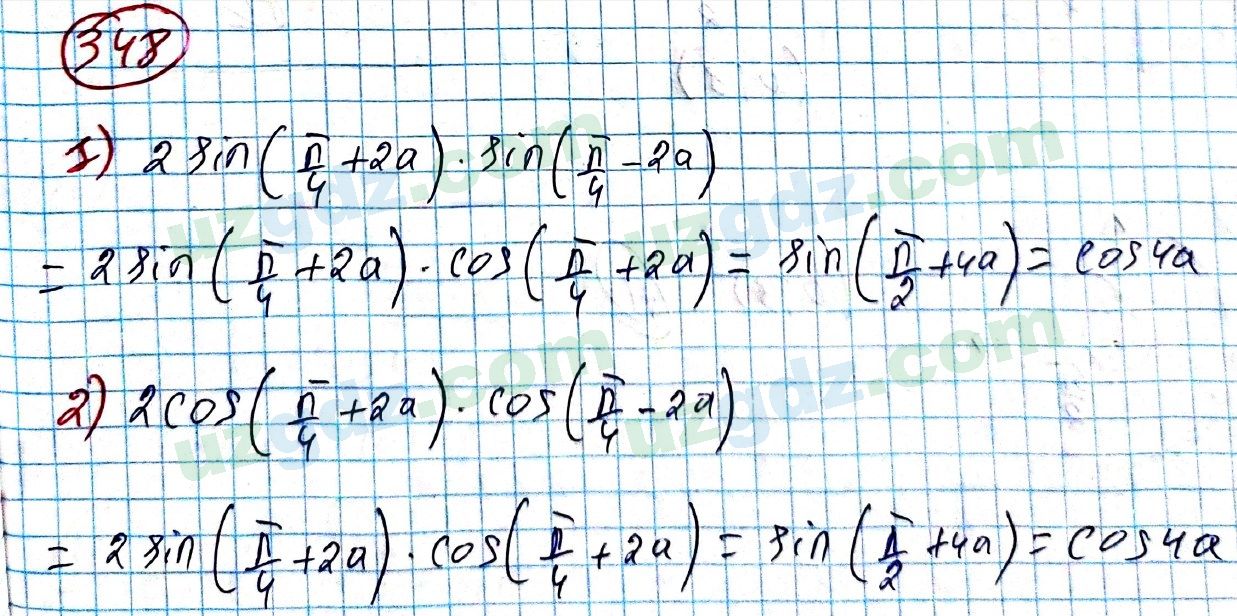 348
1) 2 sin(π/4 + 2a) · sin(π/4 - 2a)
= 2 sin(π/4 + 2a) · cos(π/4 + 2a) = sin(π/2 + 4a) = cos 4a
2) 2 cos(π/4 + 2a) · cos(π/4 - 2a)
= 2 sin(π/4 + 2a) · cos(π/4 + 2a) = sin(π/2 + 4a) = cos 4a
uzgdz.com
uzgdz.com
uzgdz.com
uzgdz.com